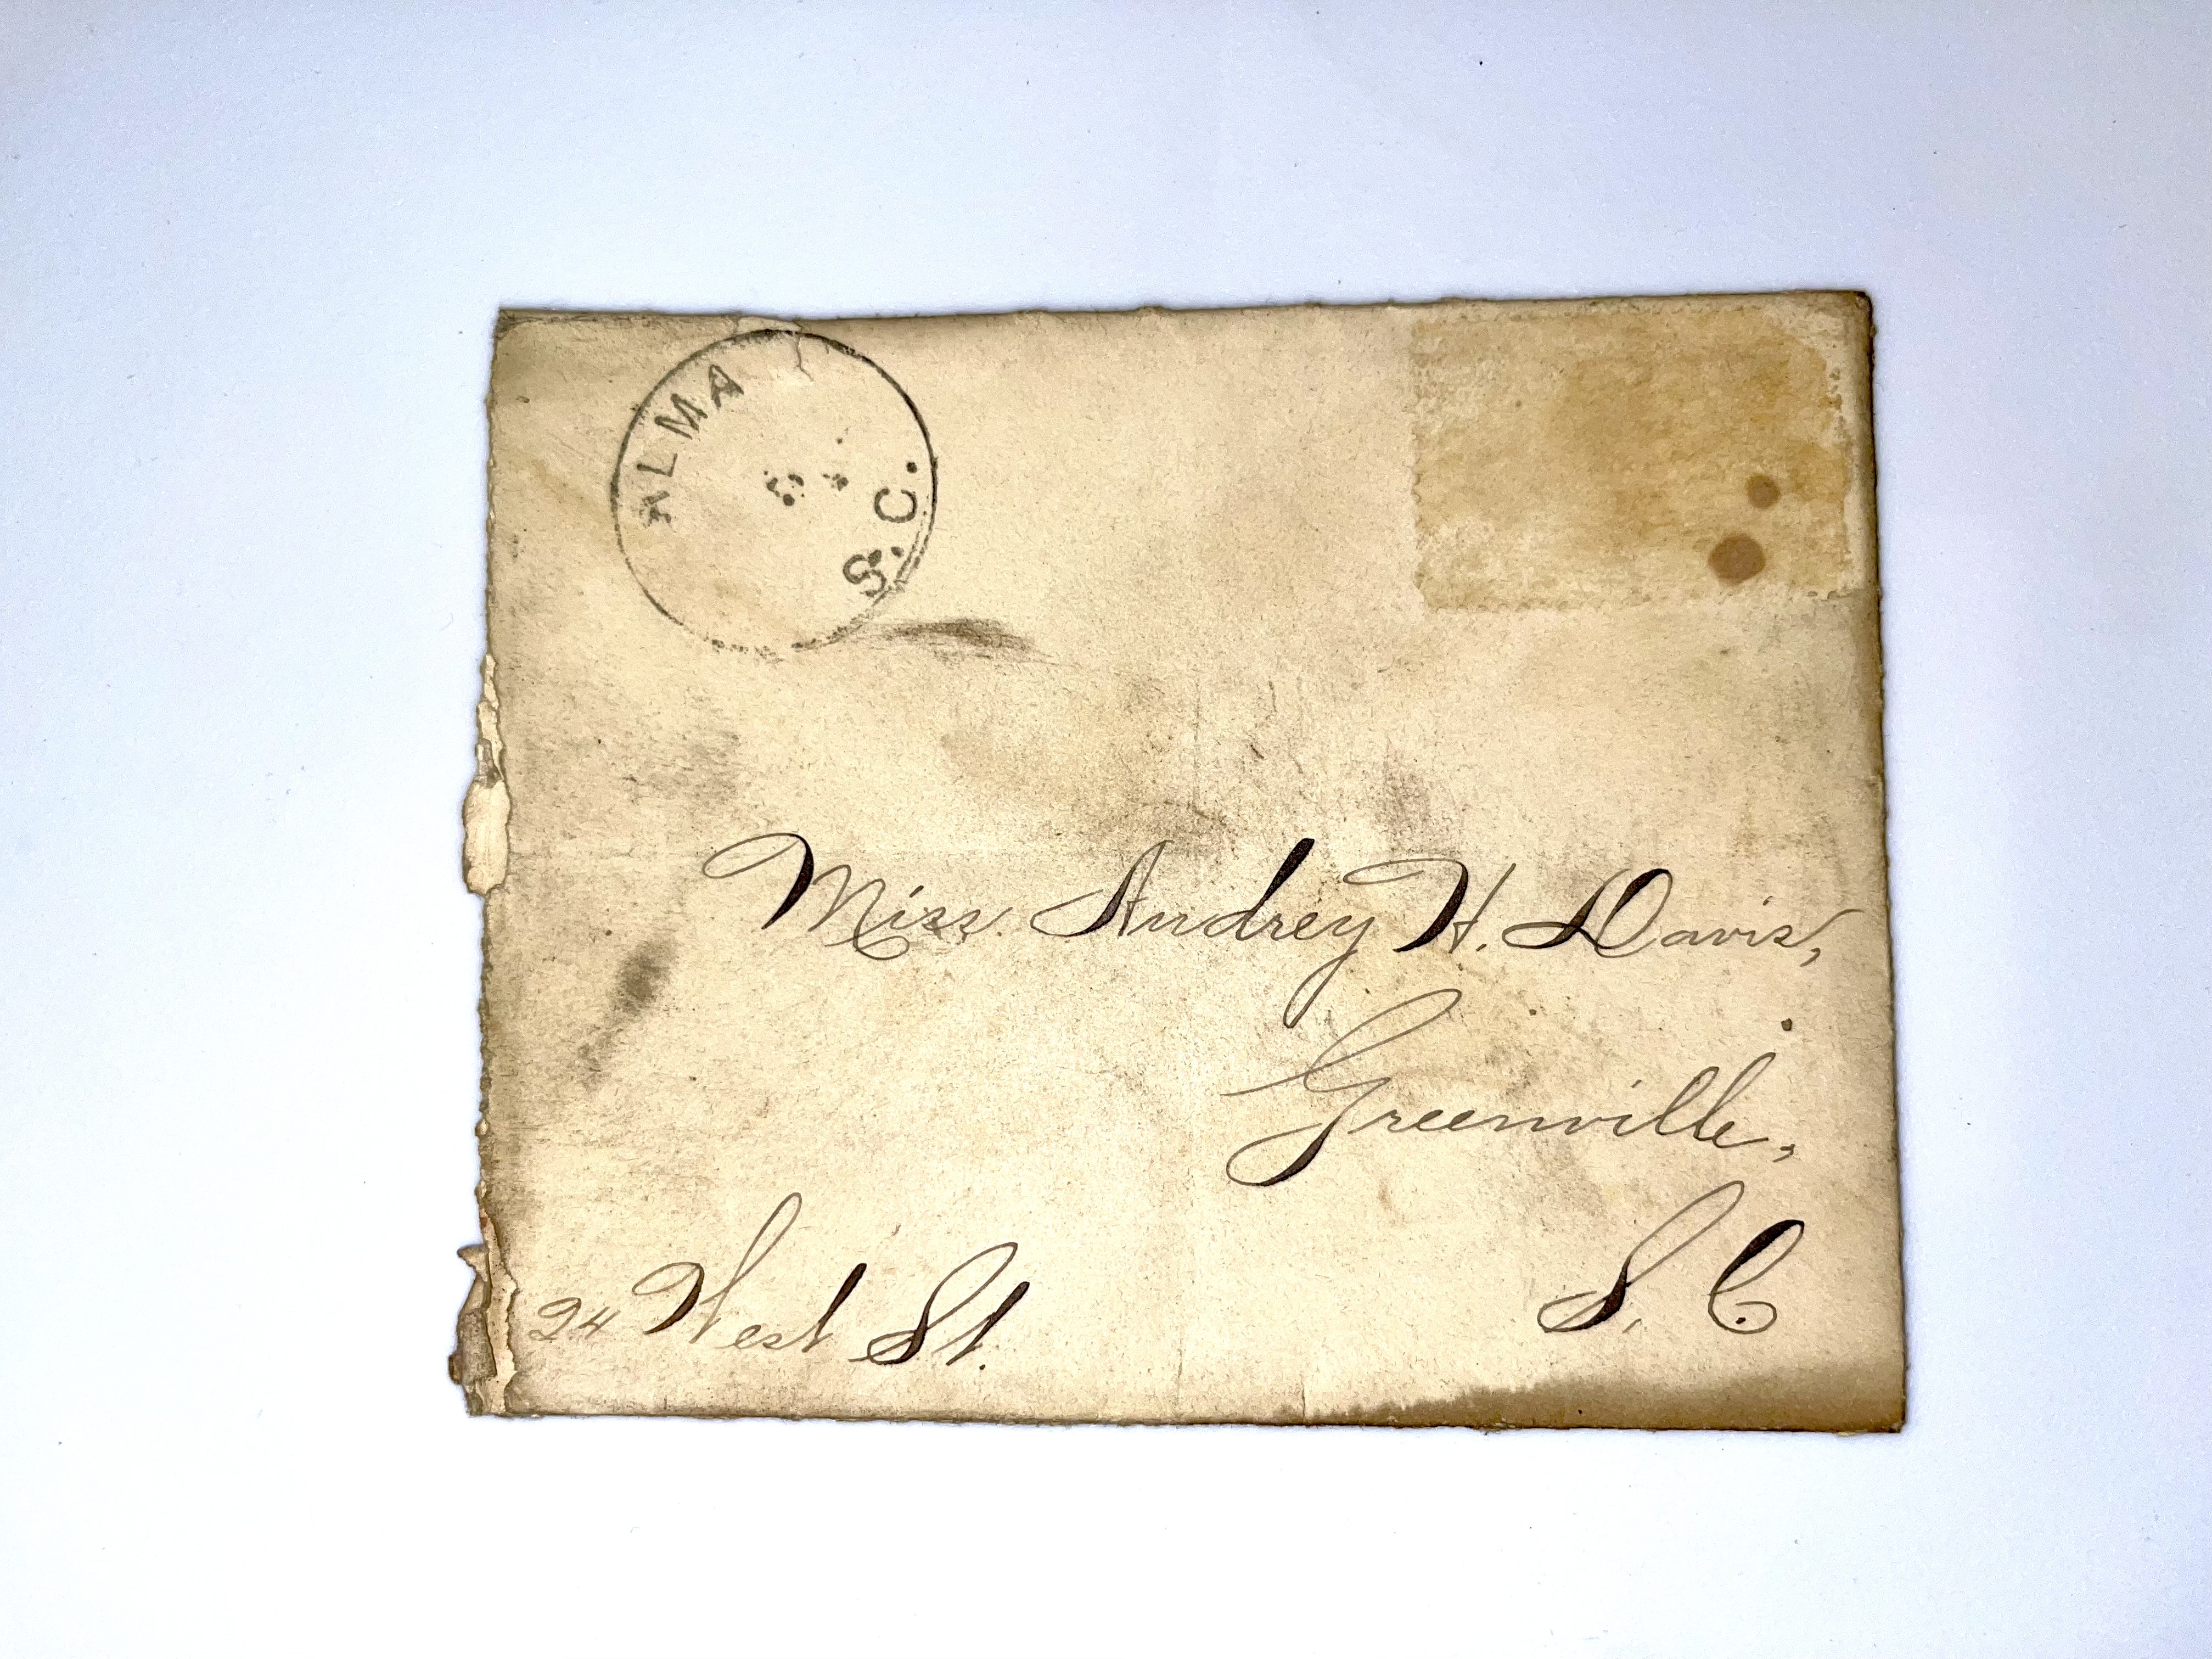 ALMA
S.C.
Miss. Audrey H. Davis,
Greenville,
S. C.
24 West St.